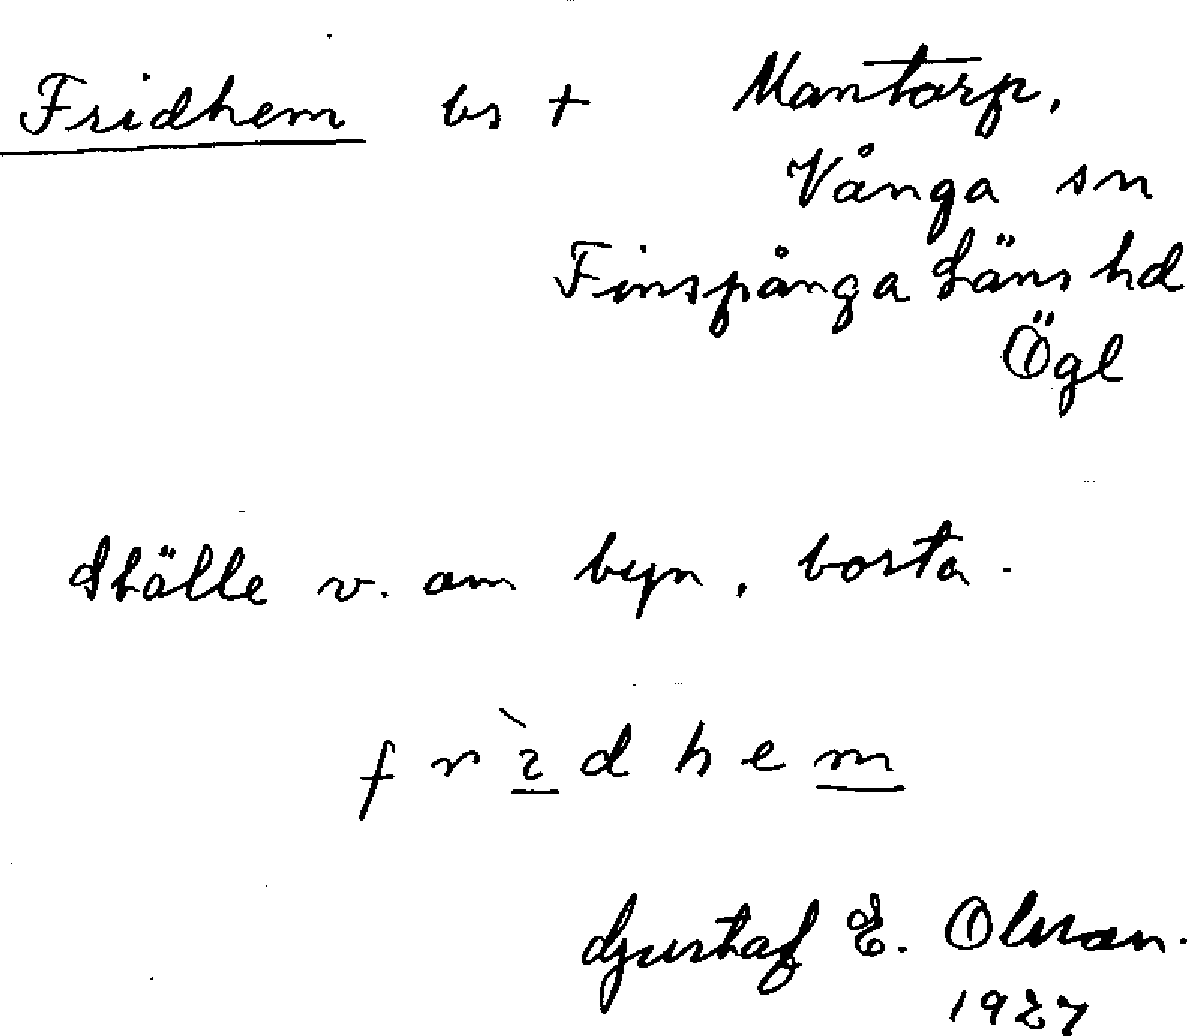 Fridhem bs + Mantorp.
Vånga sn
Finspånga läns hd
Ögl
Ställe v. om byn, borta.
f r ì d h e m
Gustaf E. Olsson.
1927